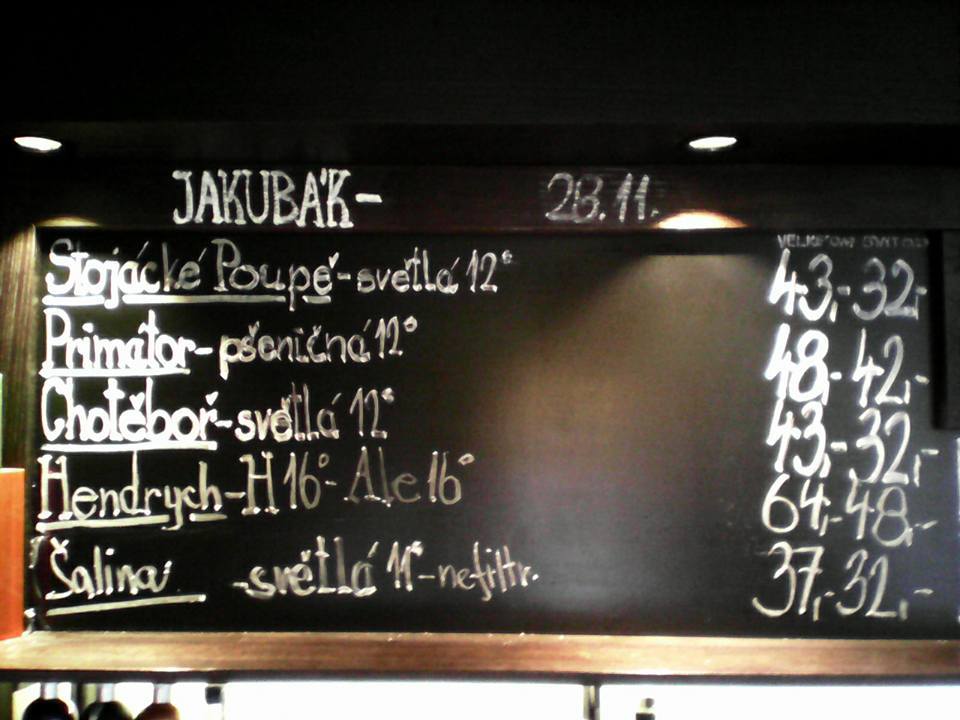 JAKUBÁK- 28.11.
Stojácké Poupě-světlá 12° 43,- 32,-
Primátor- pšeničná 12° 48,- 42,-
Chotěboř-světlá 12° 43,- 32,-
Hendrych-H16°- Ale 16° 64,- 48,-
Šalina -světlá 11°-nefiltr. 37,- 32,-